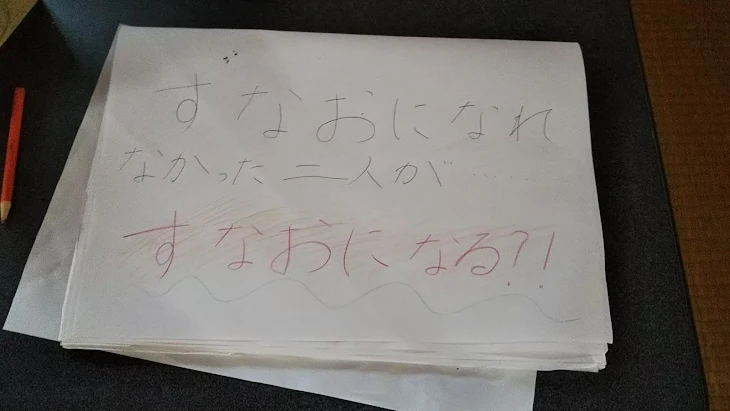 すなおになれ
なかった二人が……
すなおになる?!